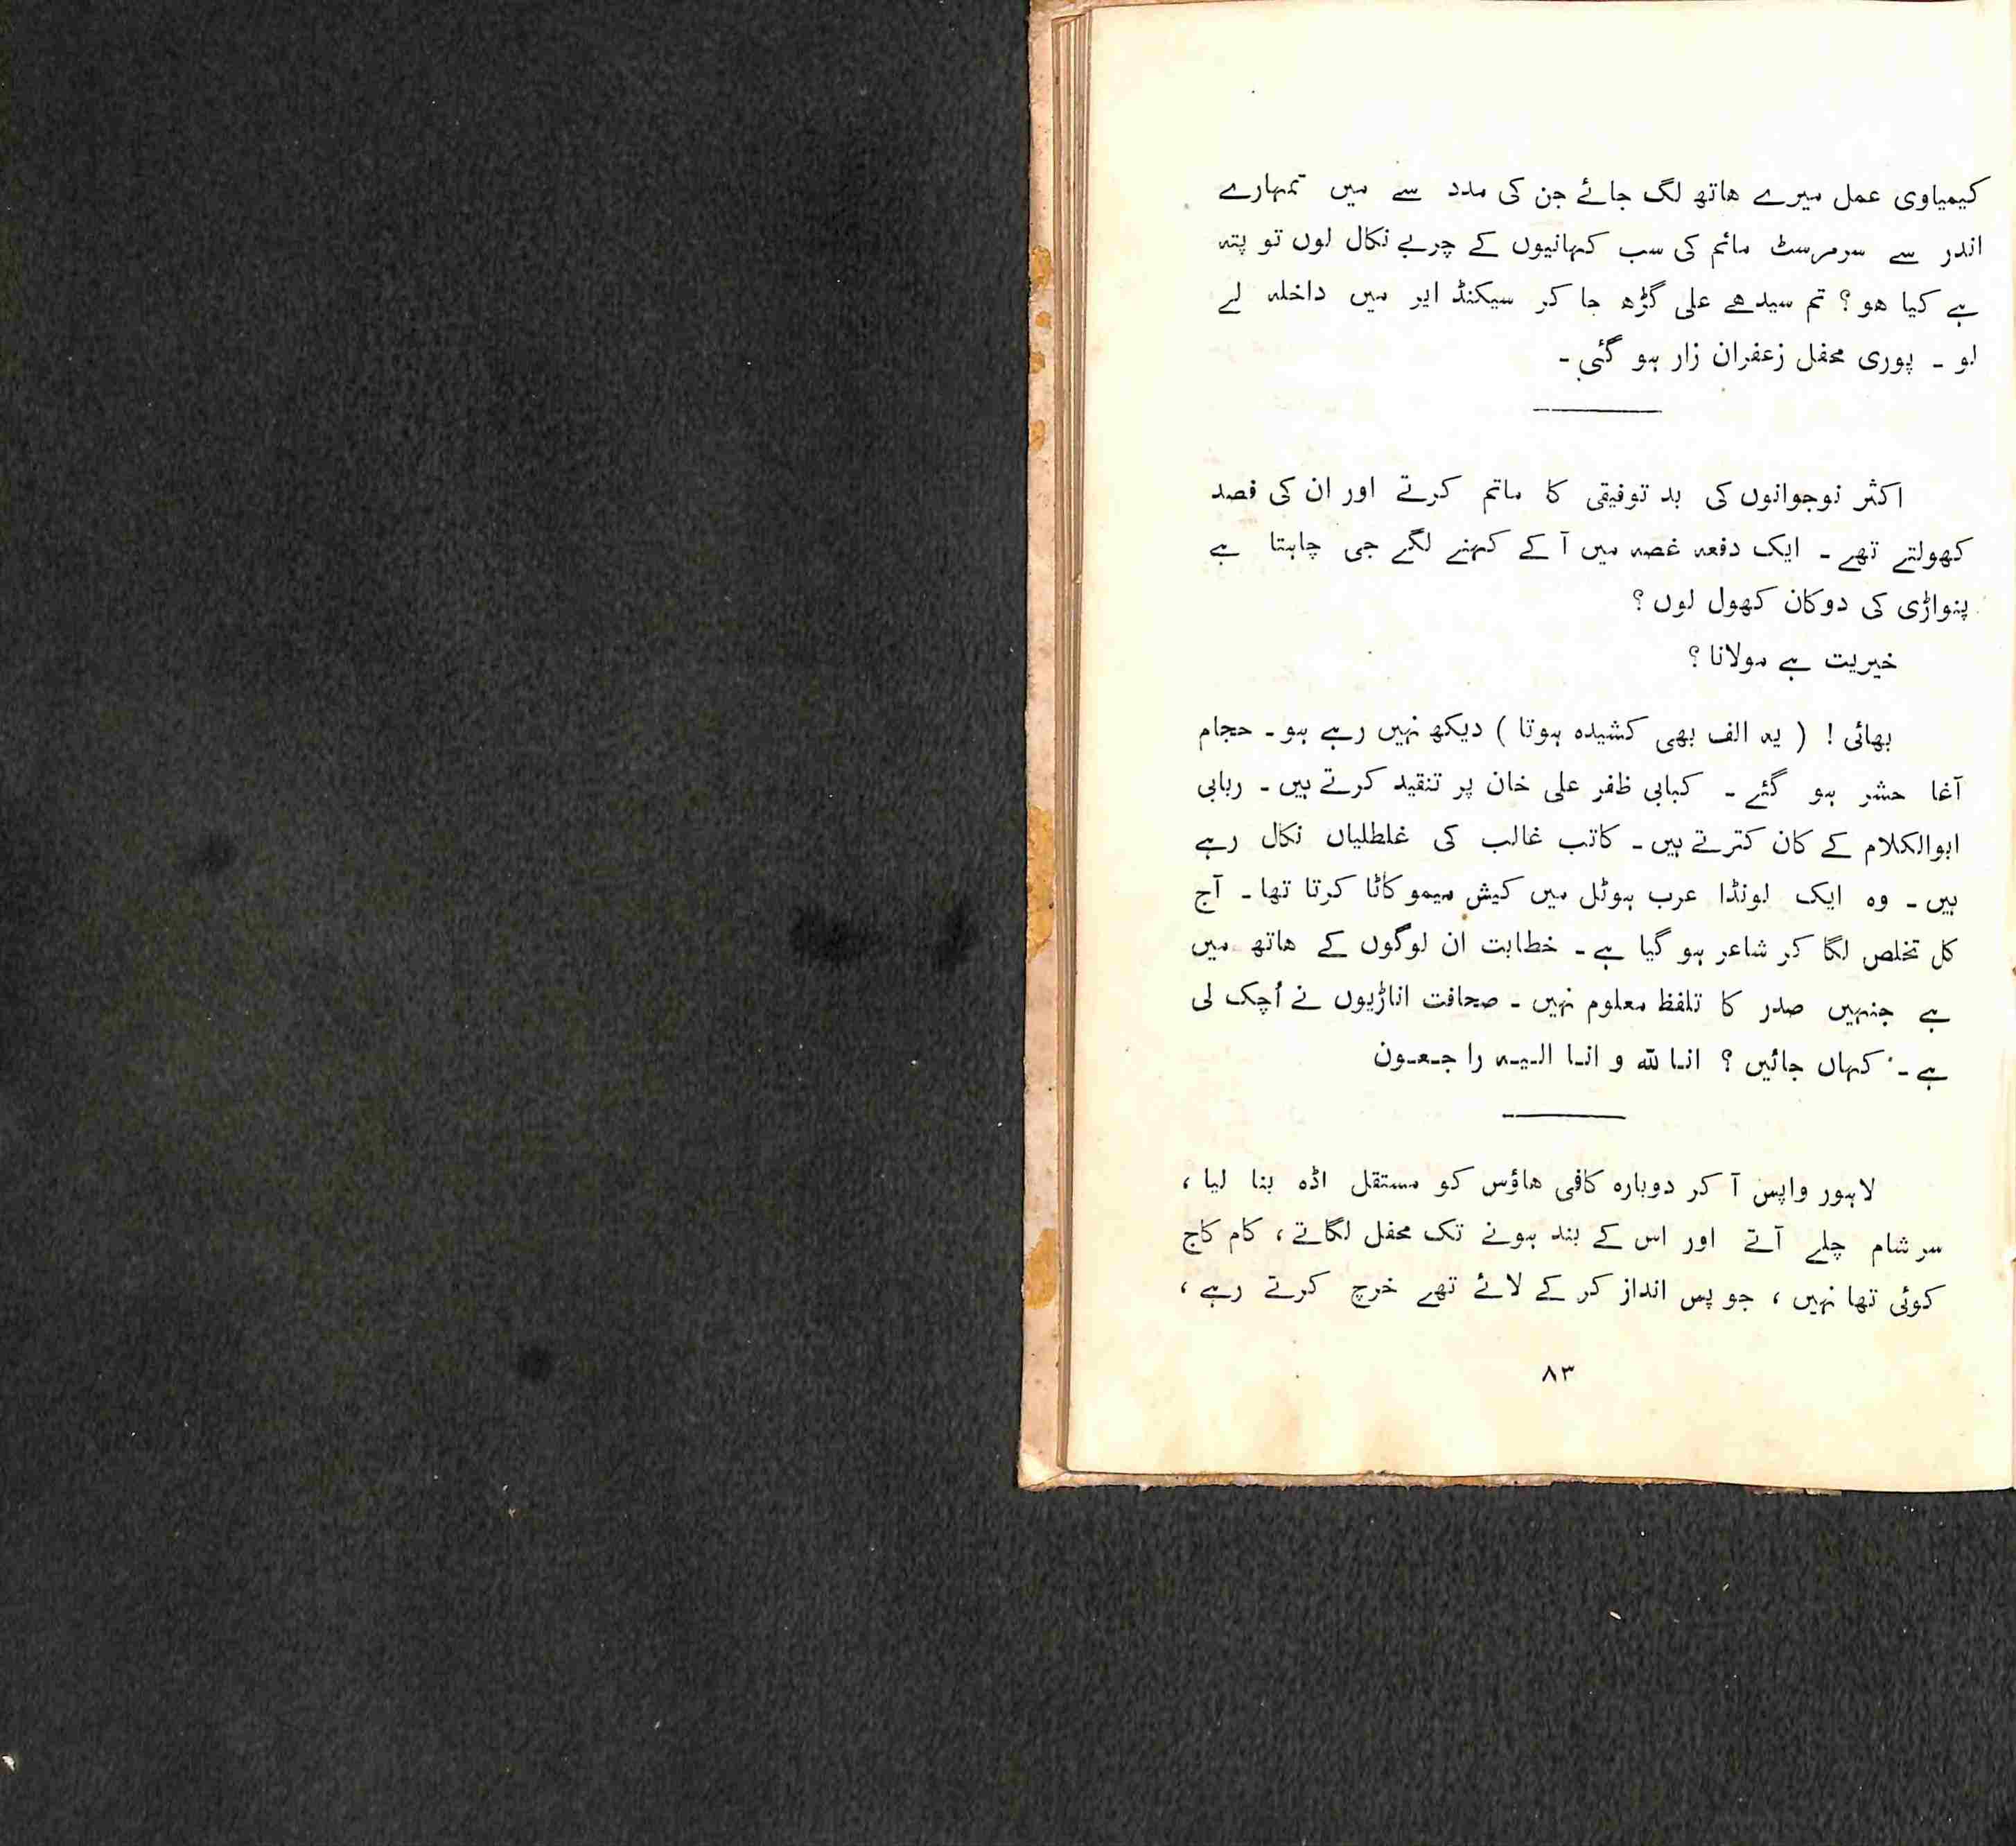 کیمیاوی عمل میرے ھاتھ لگ جائے جن کی مدد سے میں تمہارے
اندر سے سرمرسٹ مائم کی سب کہانیوں کے چربے نکال لوں تو پتہ
ہے کیا ھو؟ تم سیدھے علی گڑھ جا کر سیکنڈ ایر میں داخلہ لے
لو ۔ پوری محفل زعفران زار ہو گئی ۔
اکثر نوجوانوں کی بد توفیقی کا ماتم کرتے اور ان کی فصد
کھولتے تھے ۔ ایک دفعہ غصہ میں آ کے کہنے لگے جی چاہتا ہے
پنواڑی کی دوکان کھول لوں؟
خیریت ہے مولانا؟
بھائی! (یہ الف بھی کشیدہ ہوتا) دیکھ نہیں رہے ہو ۔ حجام
آغا حشر ہو گئے ۔ کبابی ظفر علی خان پر تنقید کرتے ہیں ۔ ربابی
ابوالکلام کے کان کترتے ہیں ۔ کاتب غالب کی غلطلیاں نکال رہے
ہیں ۔ وہ ایک لونڈا عرب ہوٹل میں کیش میمو کاٹا کرتا تھا ۔ آج
کل تخلص لگا کر شاعر ہو گیا ہے ۔ خطابت ان لوگوں کے ھاتھ میں
ہے جنہیں صدر کا تلفظ معلوم نہیں ۔ صحافت اناڑیوں نے اُچک لی
ہے ۔ کہاں جائیں؟ انـا للہ و انـا الـیـہ را جـعـون
لاہور واپس آ کر دوبارہ کافی ھاؤس کو مستقل اڈہ بنا لیا ،
سر شام چلے آتے اور اس کے بند ہونے تک محفل لگاتے ، کام کاج
کوئی تھا نہیں ، جو پس انداز کر کے لائے تھے خرچ کرتے رہے ،
۸۳